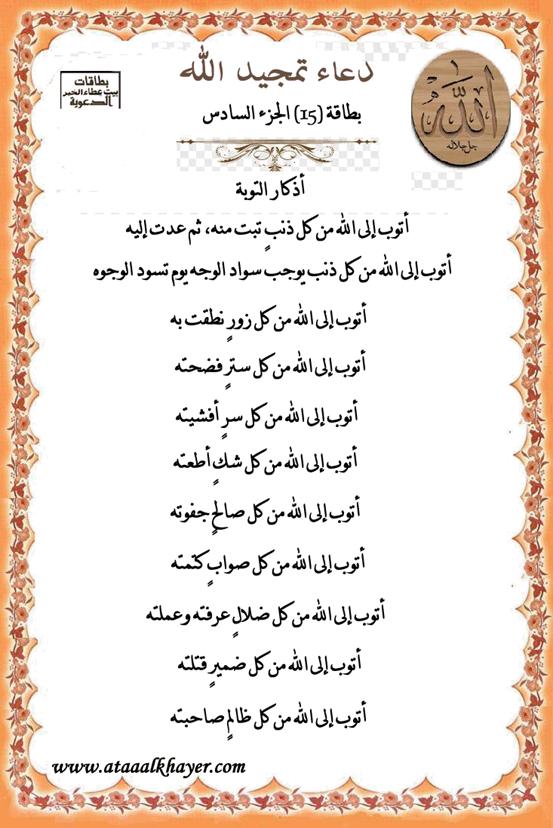 دعاء تمجيد الله
بطاقات
بيت عطاء الخير
الدعوية
الله
جل جلاله
بطاقة (15) الجزء السادس
أذكار التوبة
أتوب إلى الله من كل ذنبٍ تبت منه، ثم عدت إليه
أتوب إلى الله من كل ذنب يوجب سواد الوجه يوم تسود الوجوه
أتوب إلى الله من كل زورٍ نطقت به
أتوب إلى الله من كل سترٍ فضحته
أتوب إلى الله من كل سرٍ أفشيته
أتوب إلى الله من كل شكٍ أطعته
أتوب إلى الله من كل صالحٍ جفوته
أتوب إلى الله من كل صوابٍ كتمته
أتوب إلى الله من كل ضلالٍ عرفته وعملته
أتوب إلى الله من كل ضميرٍ قتلته
أتوب إلى الله من كل ظالمٍ صاحبته
www.ataaalkhayer.com